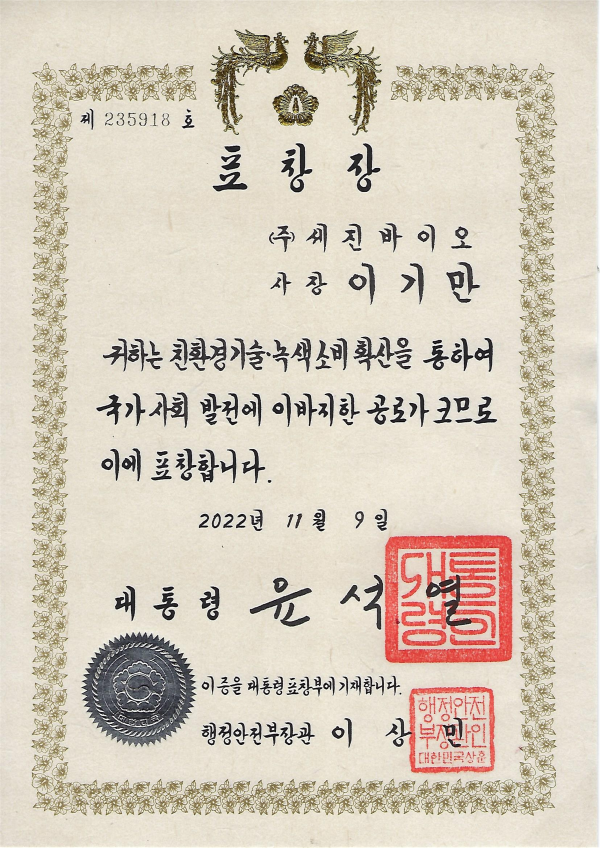 제 235918 호
표창장
(주)세진바이오
사장 이기만
귀하는 친환경기술·녹색소비 확산을 통하여
국가 사회 발전에 이바지한 공로가 크므로
이에 표창합니다.
2022년 11월 9일
대통령 윤석열
대통령의인
이 증을 대통령 표창부에 기재합니다.
행정안전부장관 이상민
행정안전
부장관인
대한민국상훈